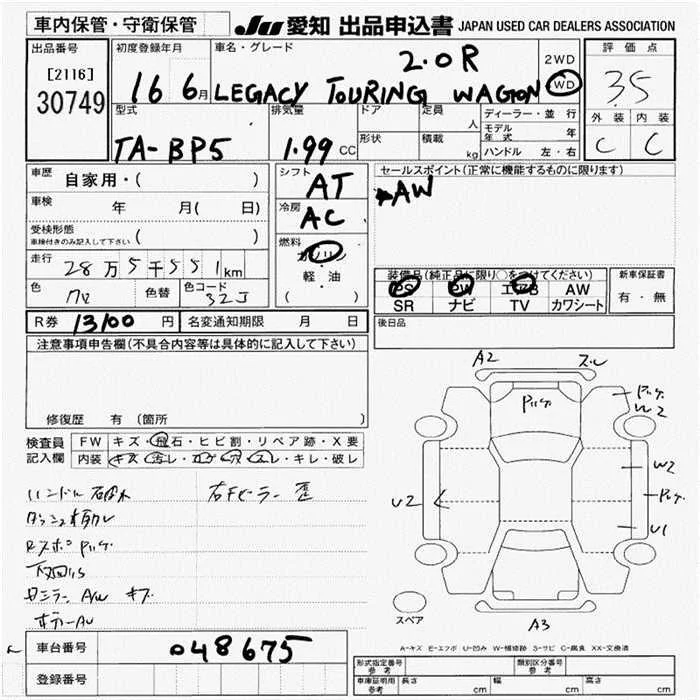 車内保管・守衛保管
JU 愛知 出品申込書 JAPAN USED CAR DEALERS ASSOCIATION
出品番号
[2116]
30749
初度登録年月
16 6月
車名・グレード
2.0R
LEGACY TOURING WAGON
2WD
4WD
評価点
3.5
外装 内装
C C
型式
TA-BP5
排気量
1.99 CC
ドア
定員
人
形状
積載
kg
ディーラー・並行
モデル年式 年
ハンドル 左・右
車歴 自家用・( )
車検 年 月(日)
受検形態
車検付きのみ記入して下さい ( )
走行 28万5千551km
色
色替
色コード 32J
シフト AT
冷房 AC
燃料
ガソリン
・
軽・油
( )
セールスポイント(正常に機能するものに限ります)
AW
装備品(純正品に限り○をつけてください)
PS PW エアB AW
SR ナビ TV カワシート
新車保証書
有・無
R券 13100円
名変通知期限 月 日
後日品
注意事項申告欄(不具合内容等は具体的に記入して下さい)
修復歴 有 (箇所 )
検査員記入欄
FW キズ・飛石・ヒビ割・リペア跡・X要
内装 キズ・汚レ・コゲ・穴・スレ・キレ・破レ
右Fピラー 歪
下回りS
AW キズ
ボデーAU
A2
スレ
U2
W2
W2
U1
A3
スペア
A-キズ E-エクボ U-凹み W-補修跡 S-サビ C-腐食 XX-交換済
車台番号 048675
登録番号
形式指定番号 参考
類別区分番号 参考
車庫証明用 参考
長さ cm
幅 cm
高さ cm